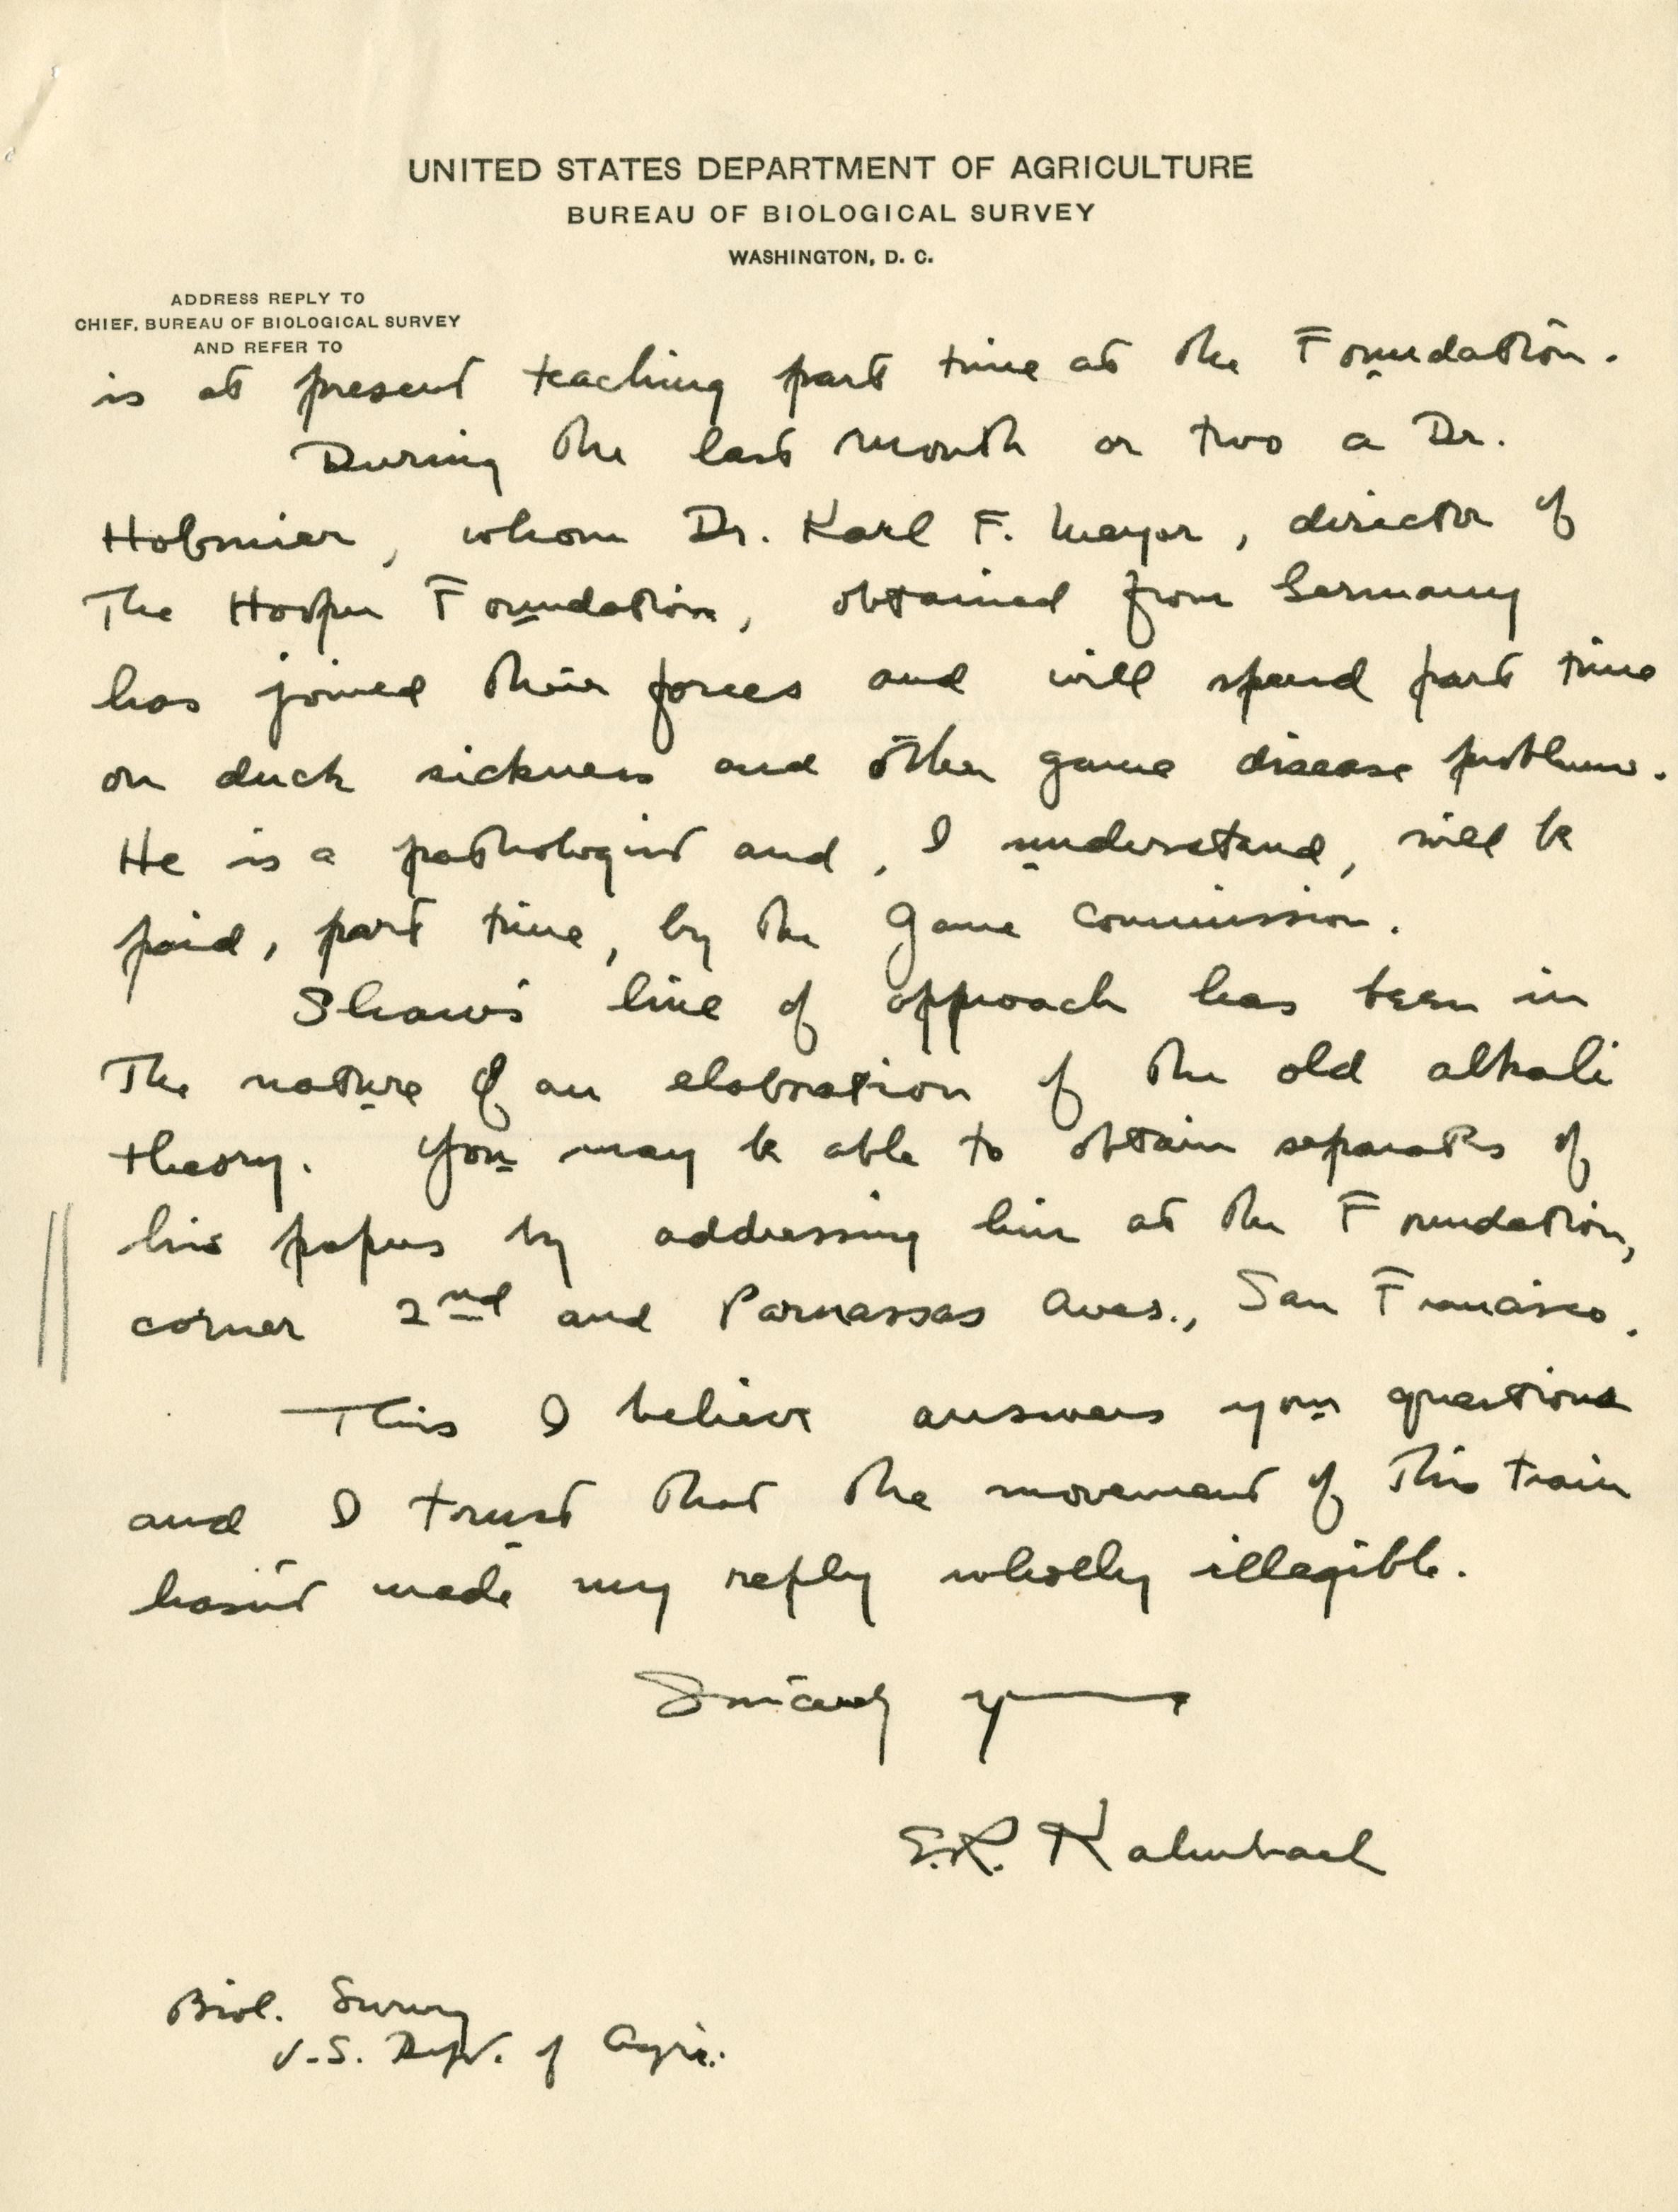 UNITED STATES DEPARTMENT OF AGRICULTURE
BUREAU OF BIOLOGICAL SURVEY
WASHINGTON, D. C.
ADDRESS REPLY TO
CHIEF, BUREAU OF BIOLOGICAL SURVEY
AND REFER TO
is at present teaching part time at the Foundation.
During the last month or two a Dr.
Hobmier, whom Dr. Karl F. Meyer, director of
The Hooper Foundation, obtained from Germany
has joined their forces and will spend part time
on duck sickness and other game disease problems.
He is a pathologist and, I understand, will be
paid, part time, by the Game Commission.
Shaw's line of approach has been in
The nature of an elaboration of the old alkali
theory. You may be able to obtain separates of
his papers by addressing him at the Foundation,
corner 2nd and Parnassas Aves., San Francisco.
This I believe answers your questions
and I trust that the movement of this train
hasn't made my reply wholly illegible.
Sincerely yours
E.R. Kalmbach
Biol. Survey
U.S. Dept. of Agri.